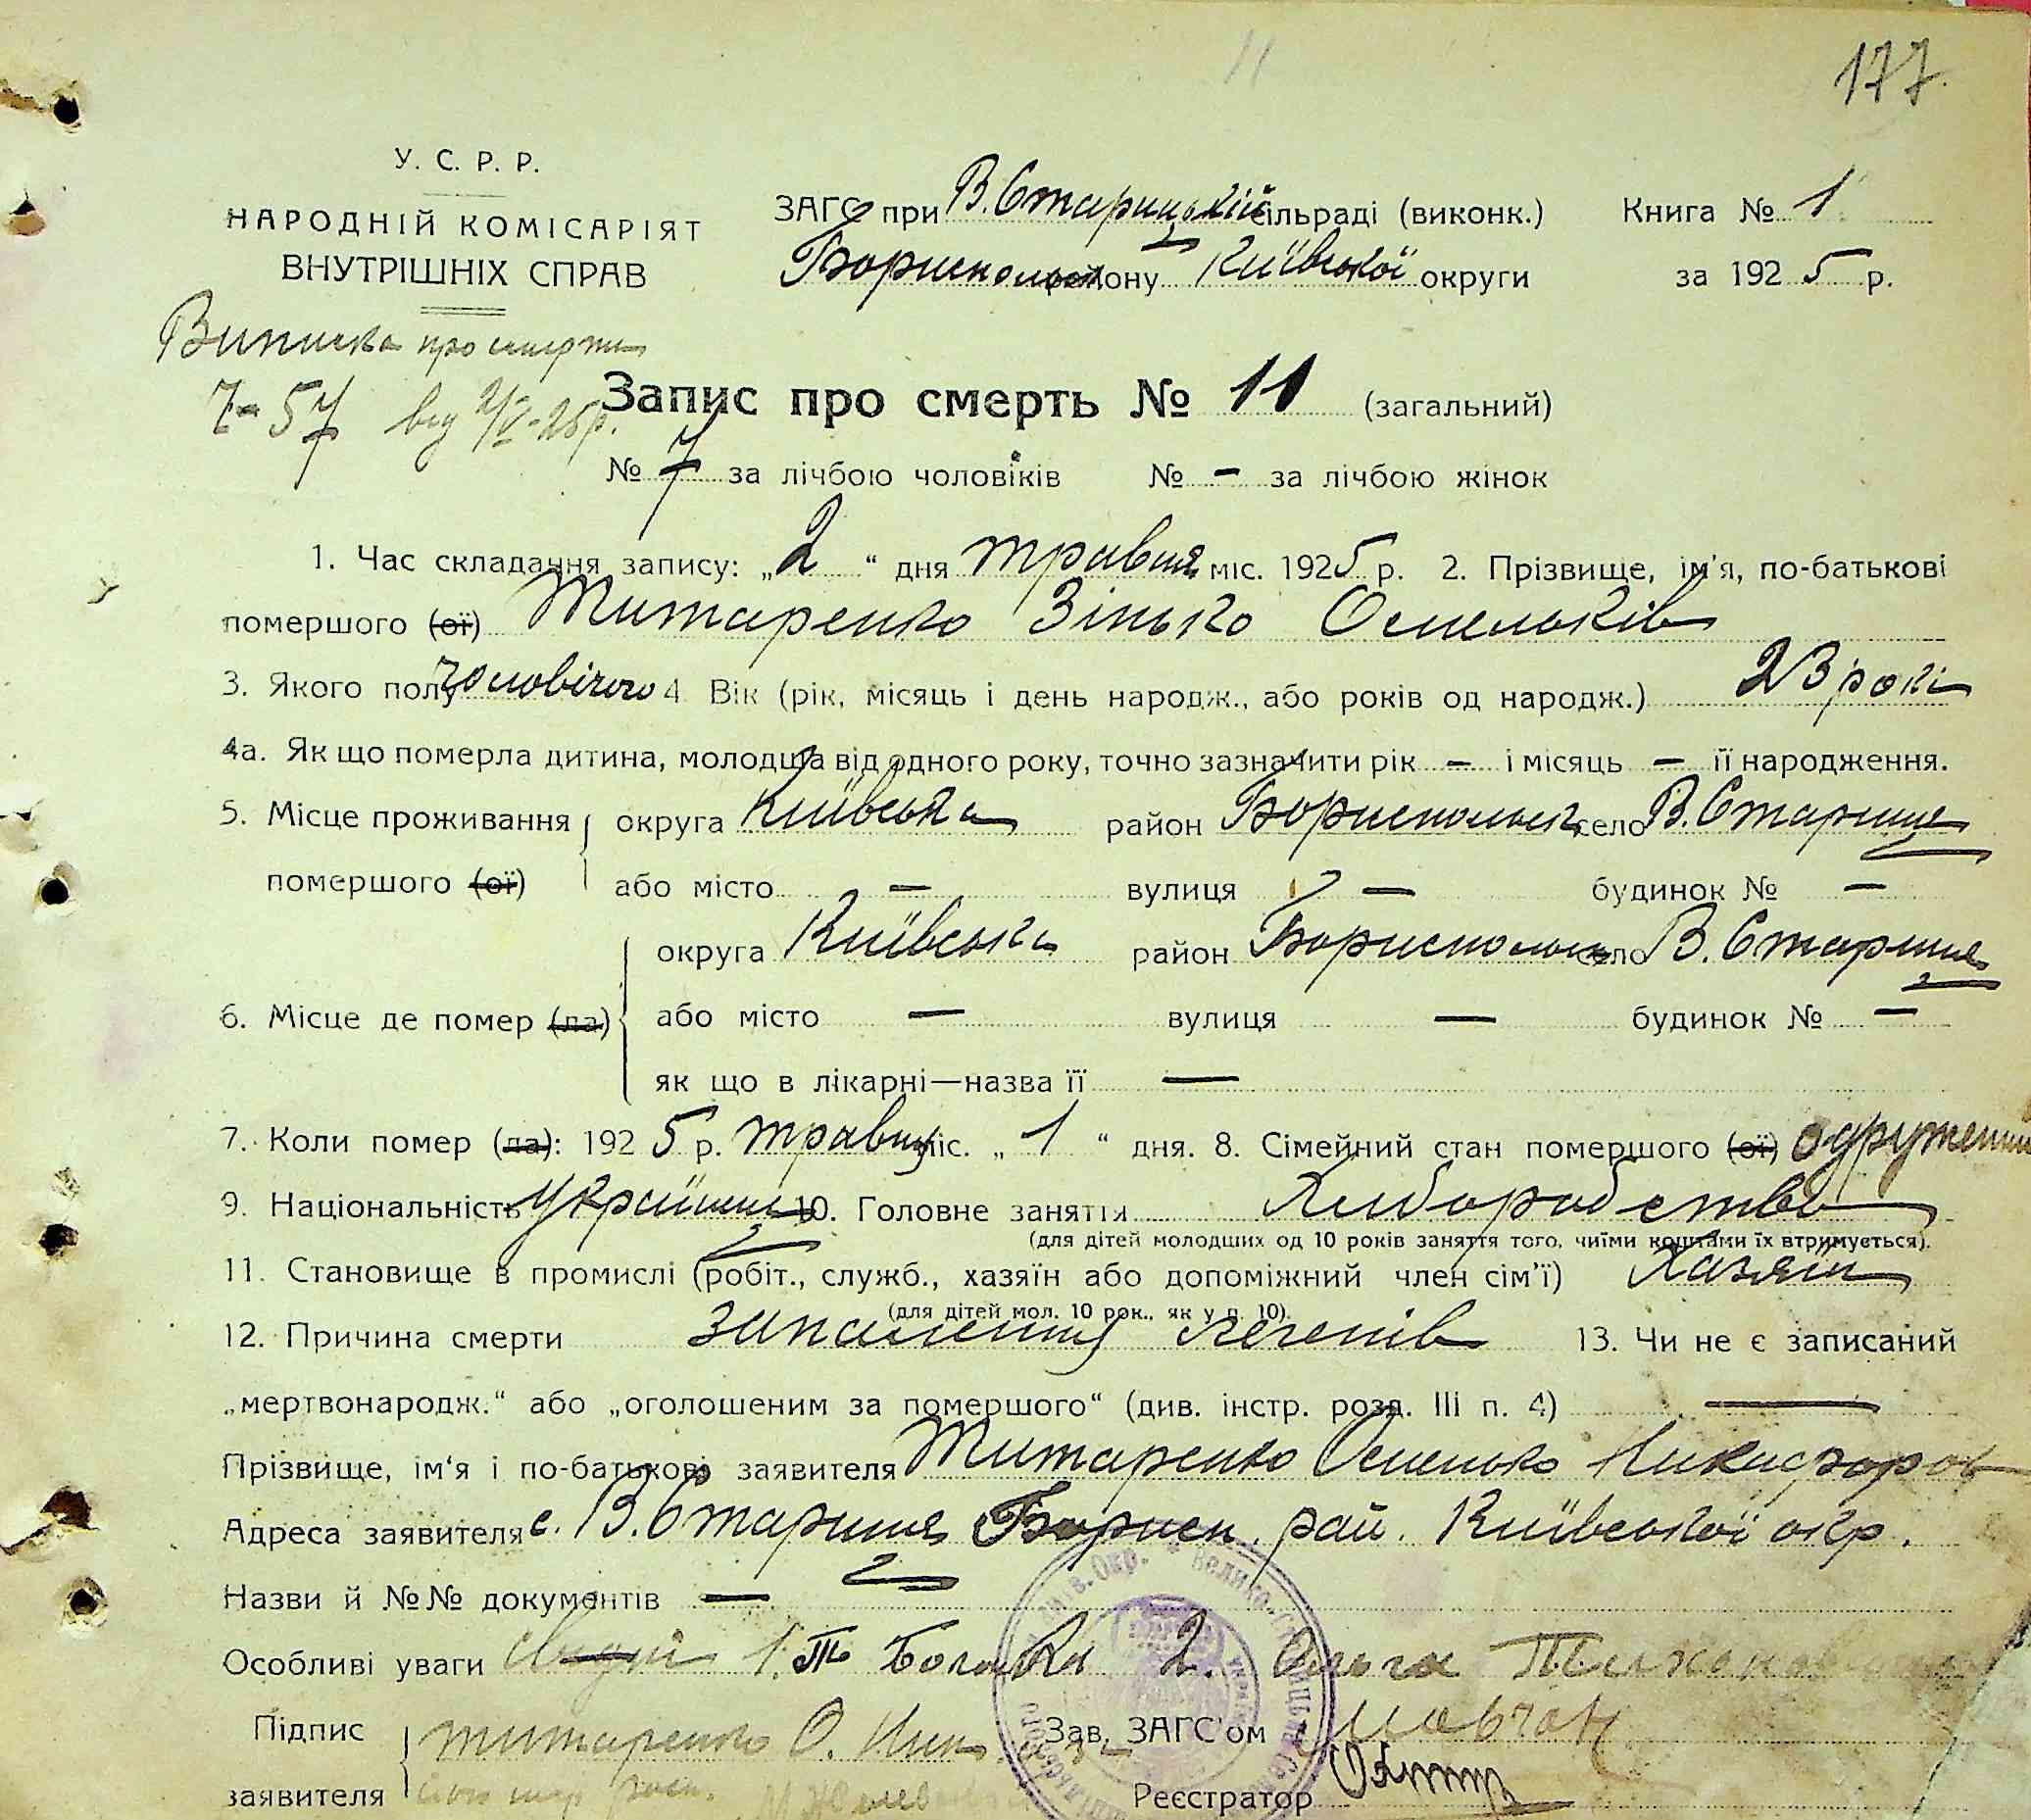 177.
У. С. Р. Р.
НАРОДНІЙ КОМІСАРІЯТ
ВНУТРІШНІХ СПРАВ
ЗАГС при В. Старицькій сільраді (виконк.) Книга № 1
Бориспольськ району Київської округи за 1925 р.
Виписка про смерть
7-57 від 2/V-25р.
Запис про смерть № 11 (загальний)
№ 7 за лічбою чоловіків № — за лічбою жінок
1. Час складання запису: „2“ дня травня міс. 1925 р. 2. Прізвище, ім'я, по-батькові
помершого (ої) Титаренко Зінько Омельків
3. Якого полу чоловічого 4. Вік (рік, місяць і день народж., або років од народж.) 23 роки
4а. Як що померла дитина, молодща від одного року, точно зазначити рік — і місяць — її народження.
5. Місце проживання округа Київська район Бориспольськ село В. Стариця
помершого (ої) або місто — вулиця — будинок № —
округа Київська район Бориспольськ село В. Стариця
6. Місце де помер (ла) або місто — вулиця — будинок № —
як що в лікарні—назва її —
7. Коли помер (ла): 1925 р. травня міс. „1“ дня. 8. Сімейний стан помершого (ої) одружений
9. Національність Українець 10. Головне заняття Хліборобство
(для дітей молодших од 10 років заняття того, чиїми коштами їх втримується).
11. Становище в промислі (робіт., служб., хазяїн або допоміжний член сім'ї) Хазяїн
(для дітей мол. 10 рок., як у п. 10).
12. Причина смерти запалення легенів 13. Чи не є записаний
„мертвонародж.“ або „оголошеним за помершого“ (див. інстр. розд. III п. 4) —
Прізвище, ім'я і по-батькові заявителя Титаренко Омелько Никифоров
Адреса заявителя с. В. Стариця Борисп. рай. Київської окр.
Назви й №№ документів —
Особливі уваги 1. 2. Ольга
Підпис Титаренко О. Ник Зав. ЗАГС'ом Мовчан
заявителя Реєстратор